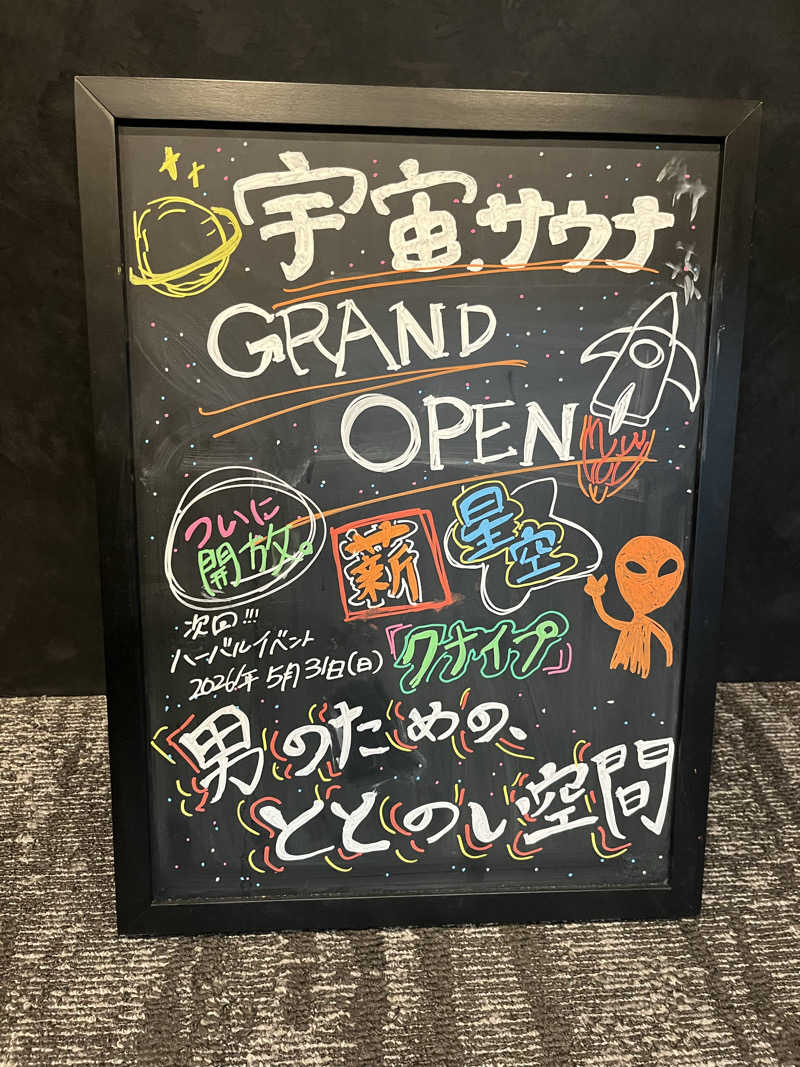 宇宙サウナ
GRAND
OPEN
ついに
開放。
薪
星空
次回!!!
ハーバルイベント
2026年5月31日(日)
「クナイプ」
男のための、
ととのい空間